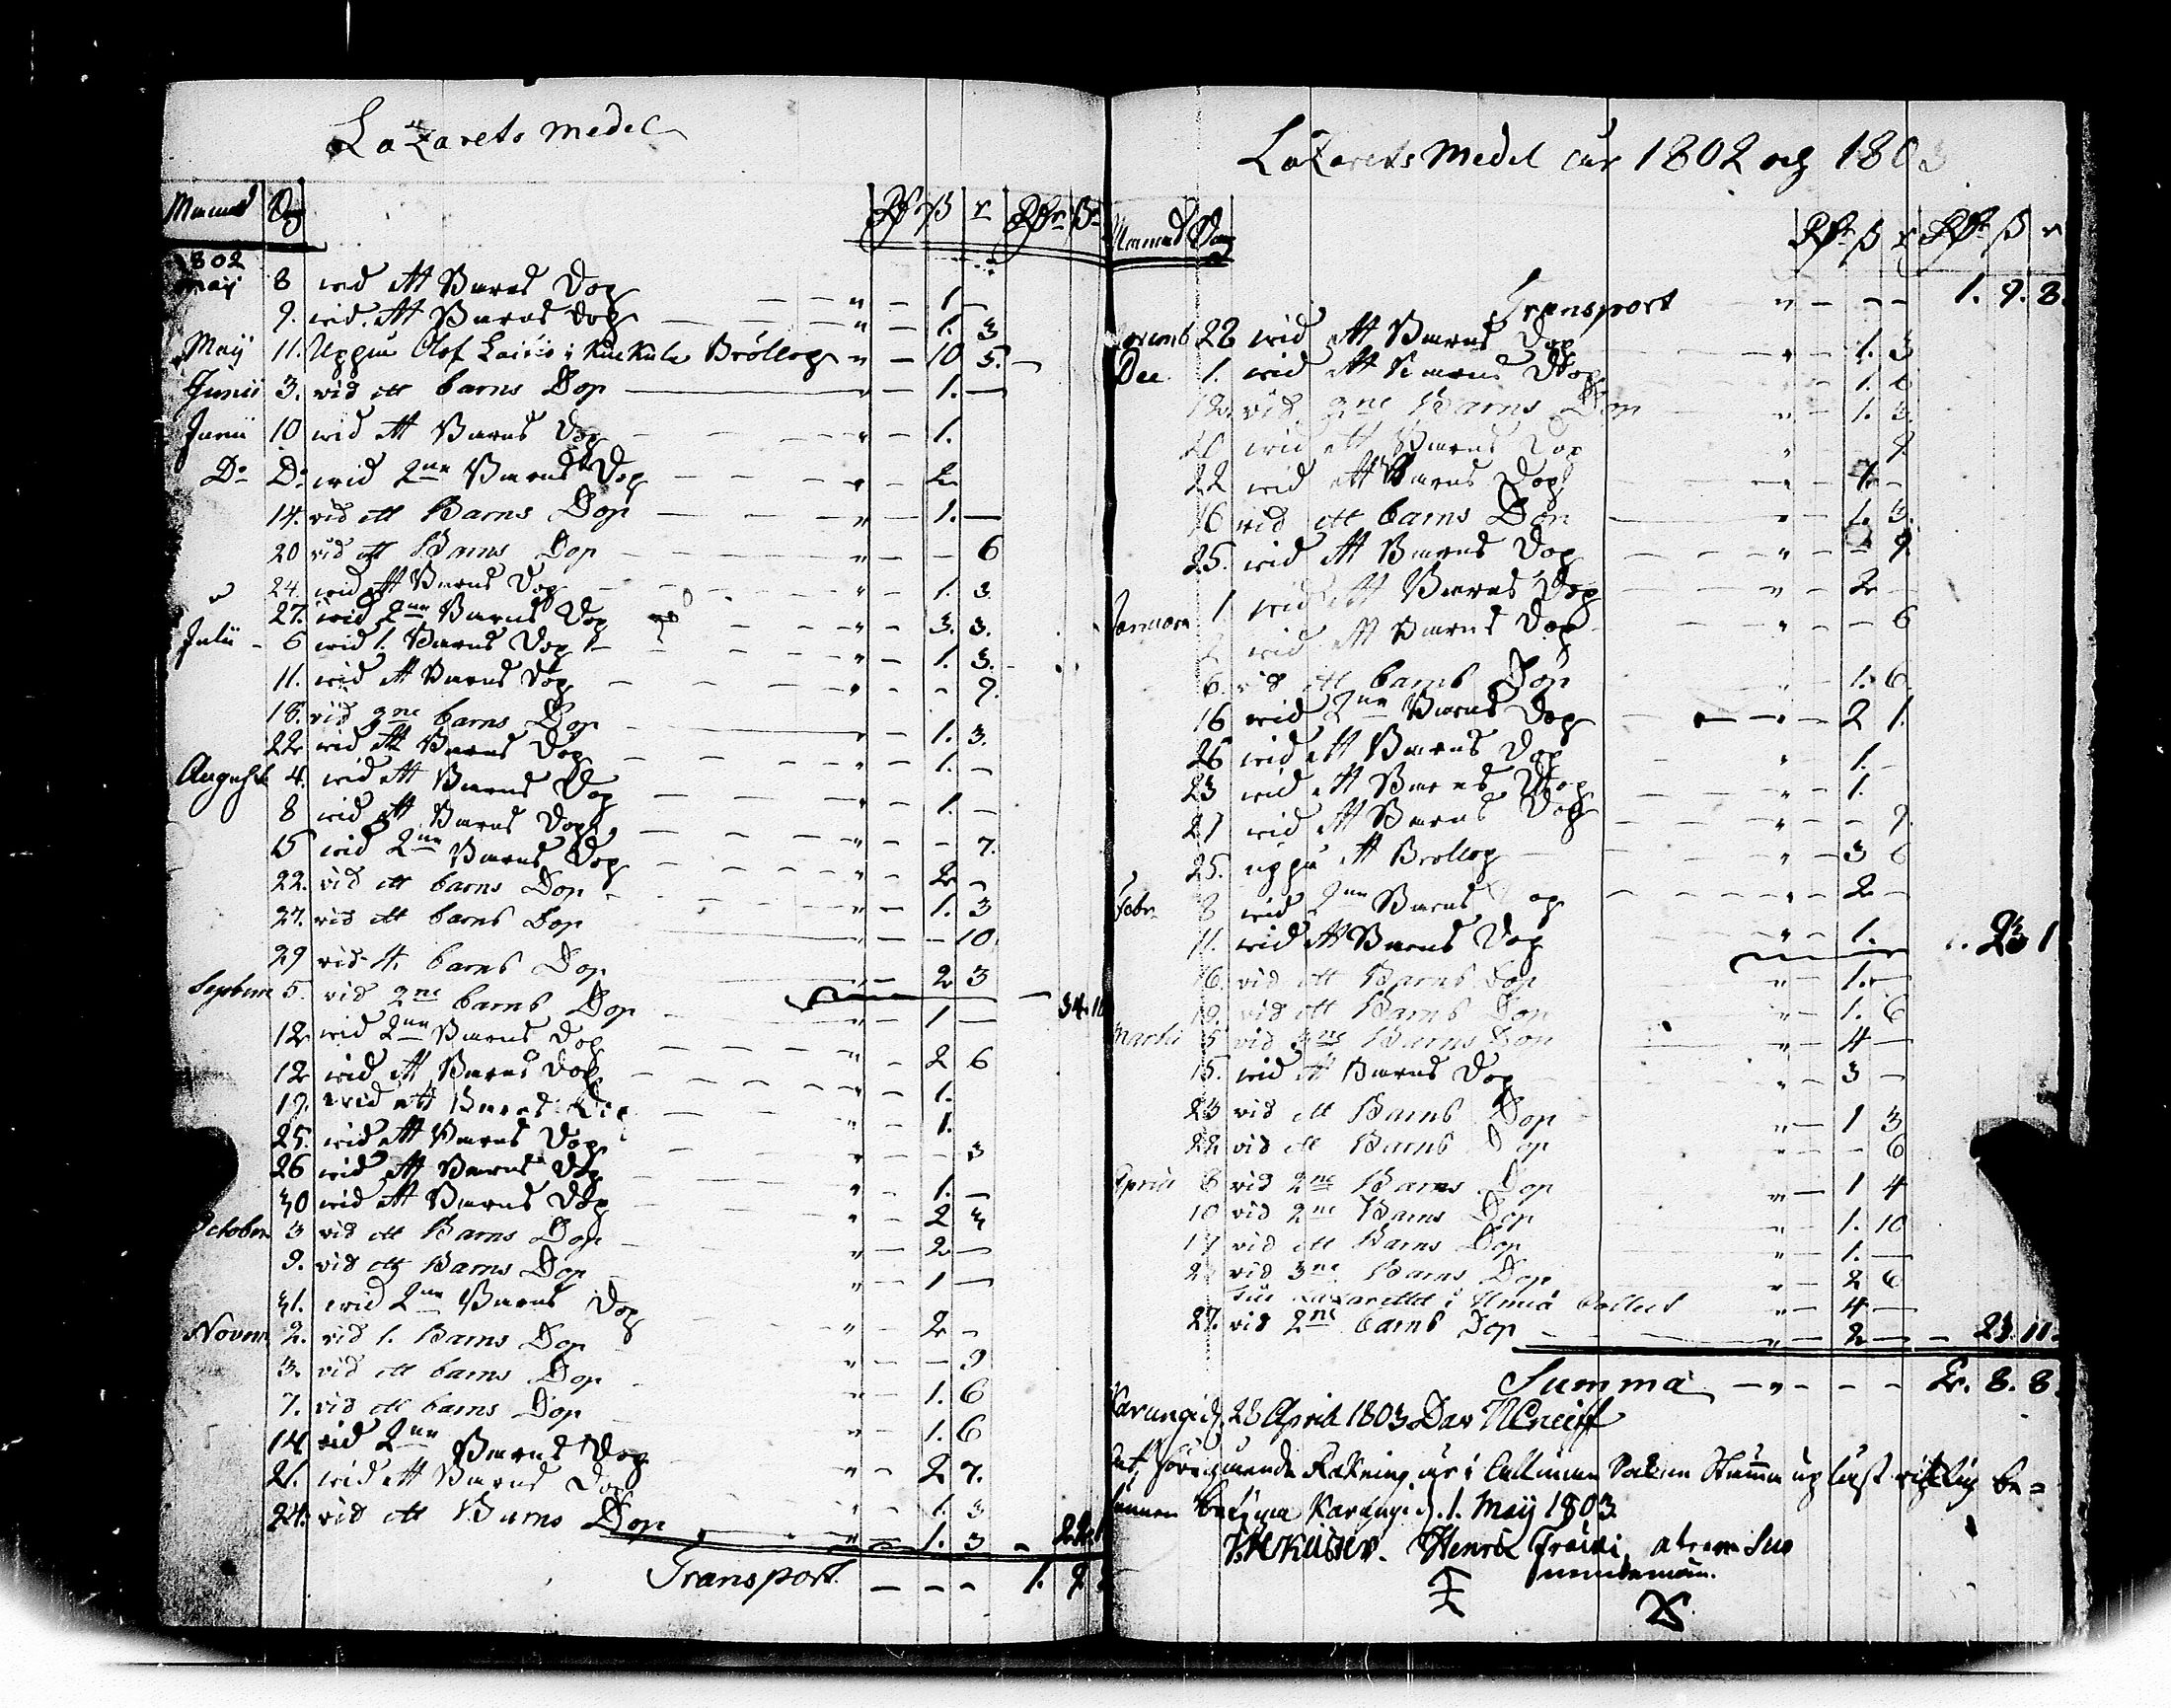 Lazarets medel
Månad Dag Rdr ß r Rdr ß r
1802
Maij 8 wid ett Barns Dop " 1. -
9. wid ett Barns Dop " 1. 3
Maij 11. Uppå Olof Laitis i Kuckula Bröllop " 10 5.
Junii 3. vid ett barns Dop " 1. -
Junii 10 wid ett Barns Dop " 1.
Do Do wid 2ne Barns Dop " 2
14. vid ett Barns Dop " 1. -
20 vid ett Barns Dop " - 6
24. wid ett Barns Dop " 1. 3
27. wid 2ne Barns Dop " 3. 3.
Julii 6 wid 1. Barns Dop " 1. 3.
11. wid ett Barns Dop " - 9.
18. vid 2ne barns Dop " 1. 3.
22 wid ett Barns Dop " 1. -
August 4. wid ett Barns Dop " 1. -
8 wid ett Barns Dop " - 7.
15 wid 2ne Barns Dop " 2 -
22. vid ett barns Dop " 1. 3
27. vid ett barns Dop " - 10.
29 vid 4. barns Dop " 2 3
Septembr 5. vid 2ne barns Dop " 1 - 34. 10
12 wid 2ne Barns Dop " 2 6
12 wid ett Barns Dop " 1.
19. wid ett Barns Dop " 1.
25. wid ett Barns Dop " - 3
26 wid ett Barns Dop " 1. -
30 wid ett Barns Dop " 2 3
October 3 vid ett Barns Dop " 2 -
9. vid ett Barns Dop " 1 -
31. wid 2ne Barns Dop " 2 -
Novem 2. vid 1. Barns Dop " - 9
3. vid ett barns Dop " 1. 6
7. vid ett barns Dop " 1. 6
14. wid 2ne Barns Dop " 2 7.
21. wid ett Barns Dop " 1. 3
24. vid ett Barns Dop " 1. 3 22.
Transport 1. 9
Lazarets Medel för 1802 och 1803
Månad Dag Rdr ß r Rdr ß r
Transport " 1. 9. 8.
Novemb 22 wid ett Barns Dop " 1. 3
Dec. 1. wid ett Barns Dop " 1. 6
12 vid 2ne Barns Dop " 1. 3.
wid ett Barns Dop " 9.
22 wid ett Barns Dop " 1. -
16 vid ett barns Dop " 1. 3.
25. wid ett Barns Dop " - 9.
Januari 1 wid ett Barns Dop " 2 -
wid ett Barns Dop " - 6
6. vid ett barns Dop " 1. 6
16 wid 2ne Barns Dop " 2 1.
26 wid ett Barns Dop " 1. -
23 wid ett Barns Dop " 1.
27 wid ett Barns Dop " - 9.
25. uppå ett Brollop " 3 6
Febr 8 wid 2ne Barns Dop " 2 -
11. wid ett Barns Dop " 1. 23 1
16. vid ett Barns Dop " 1. -
19. vid ett Barns Dop " 1. 6
Martii 5 vid 3ne Barns Dop " 4 -
15. wid ett Barns Dop " 3 -
23 vid ett Barns Dop " 1 3
22 vid ett Barns Dop " - 6
April 8 vid 2ne Barns Dop " 1 4
10 vid 2ne Barns Dop " 1. 10
17 vid ett Barns Dop " 1. -
vid 3ne Barns Dop " 2 6
Lazarettet i Umeå Collect " 4 -
27. vid 2ne barns Dop " 2 - 23. 11.
Summa " 2. 8. 8.
Karungi d. 28 April 1803
at föregående Räkning är i Stämma uplast riktig be=
Karungi d. 1. Maij 1803.
Henric